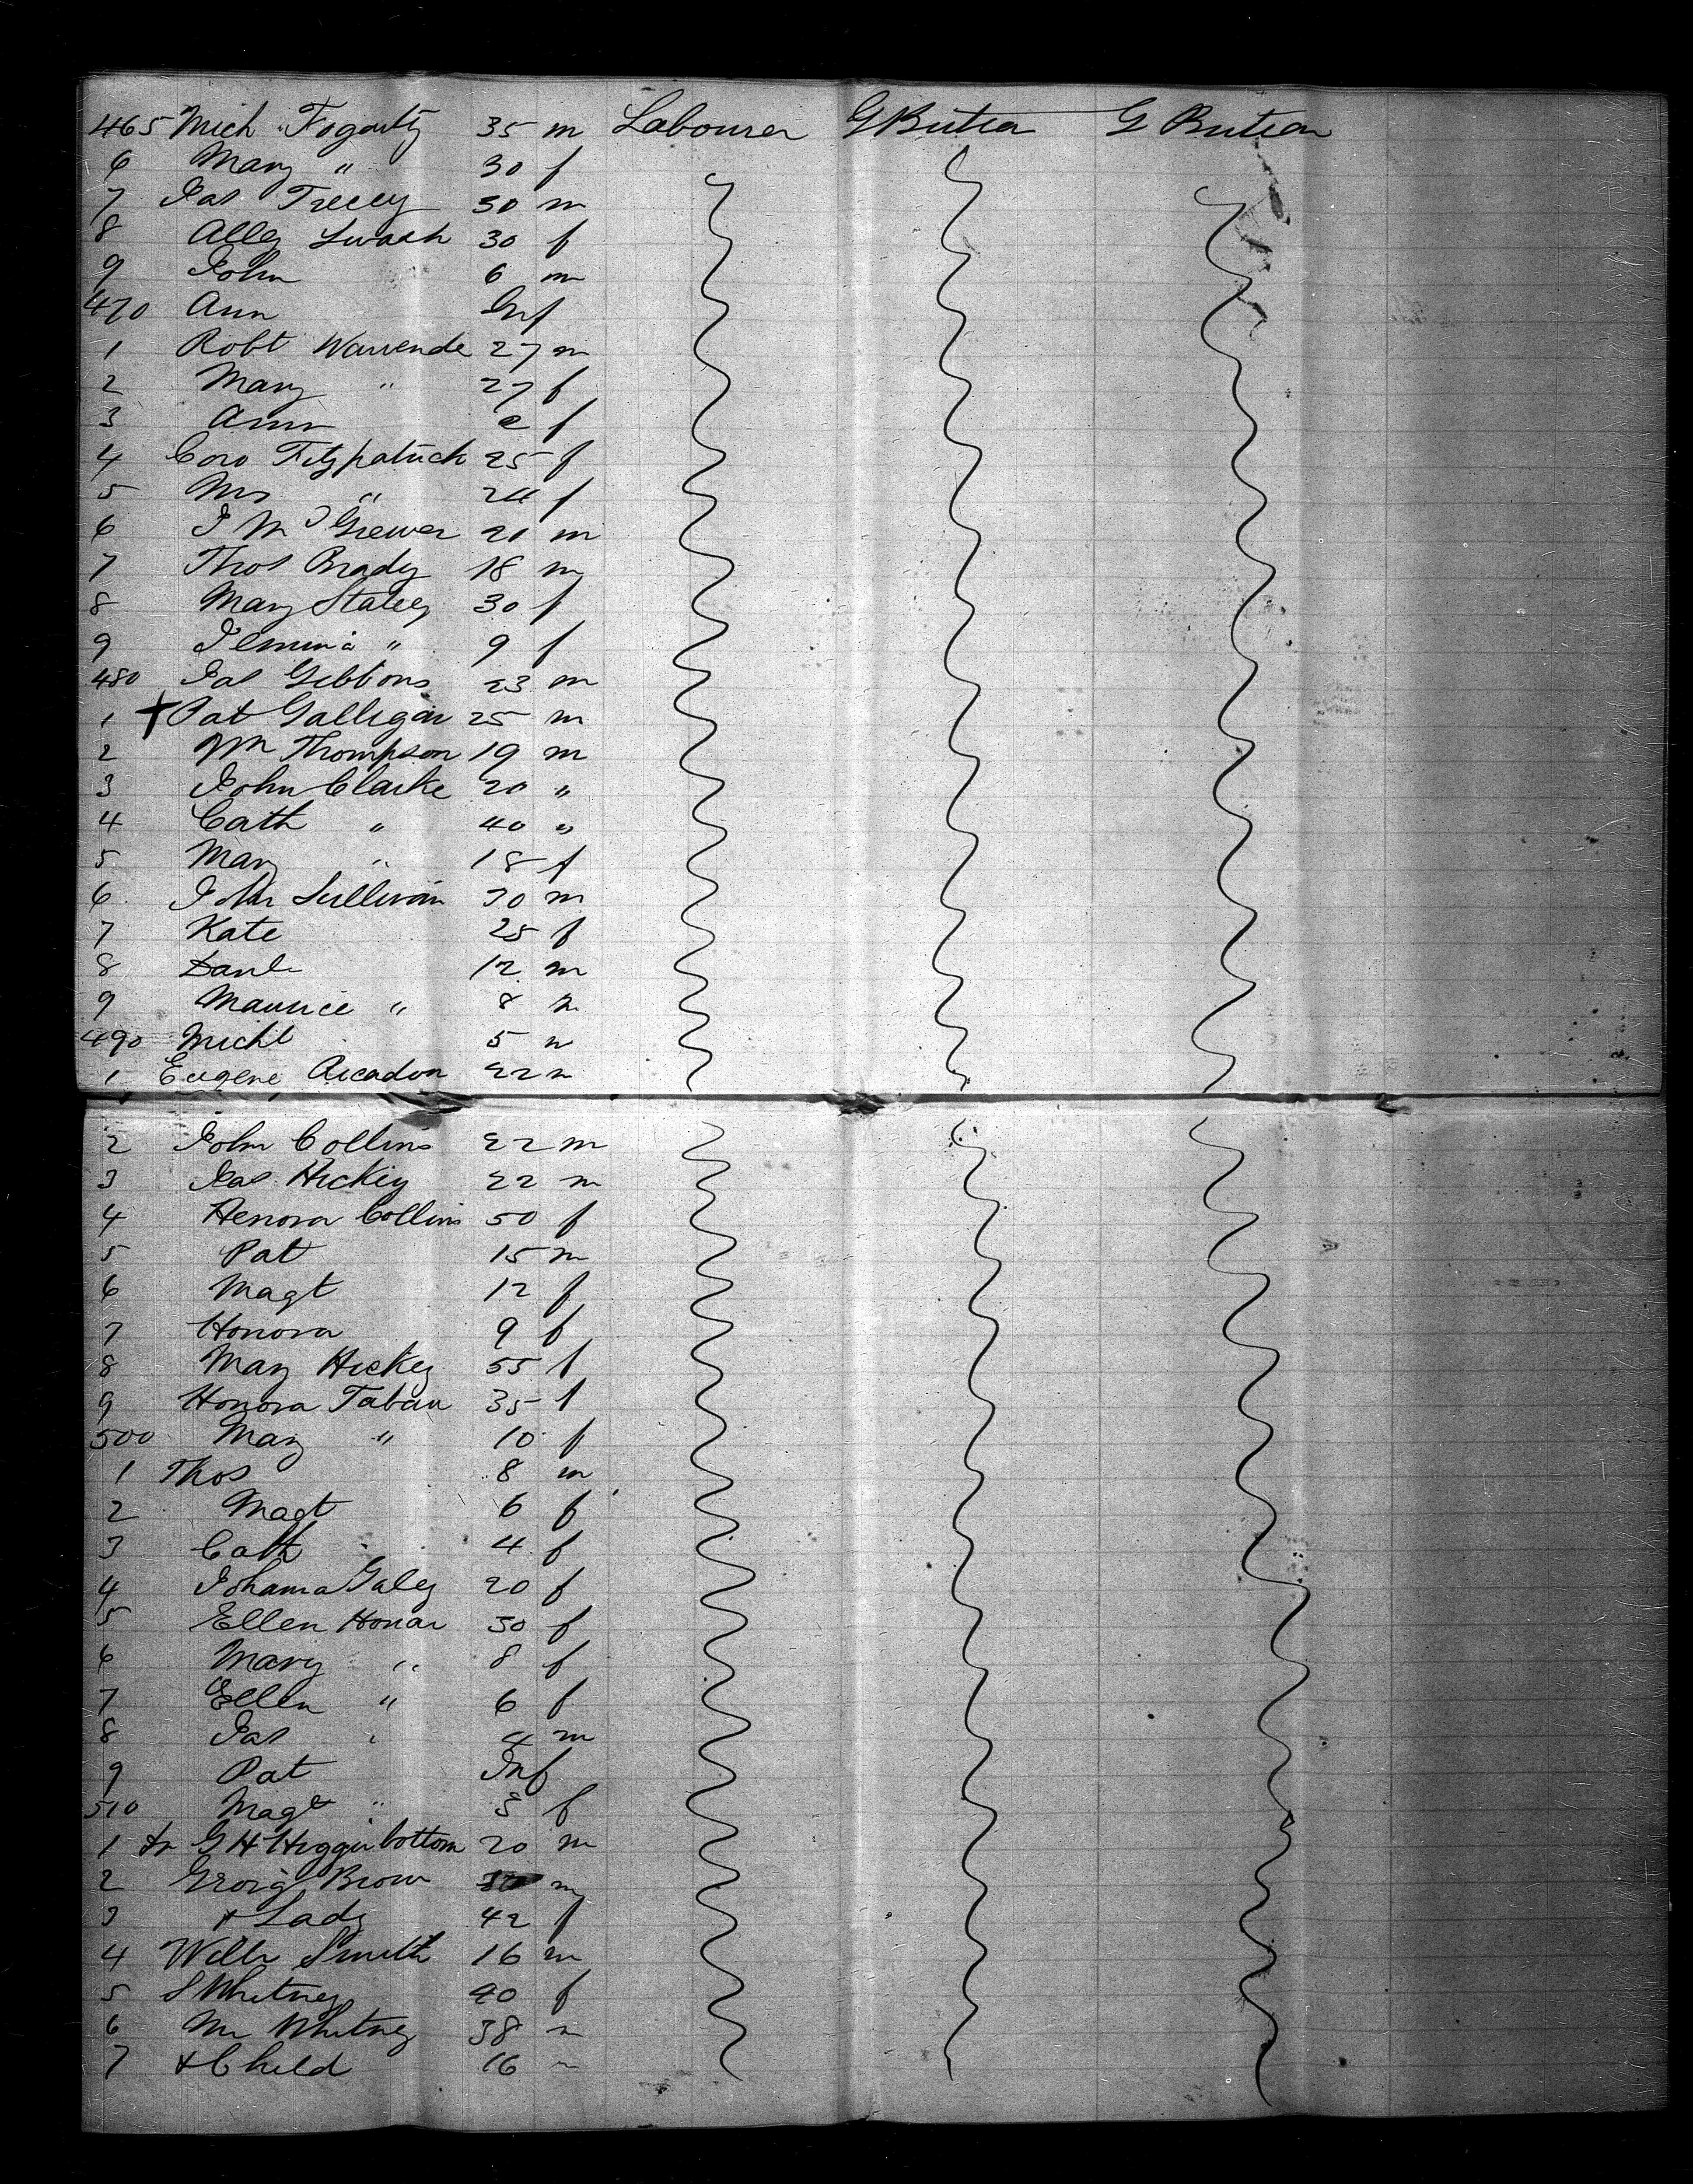 465 Mich Fogarty 35 m Labourer G Britan G Britan
6 Mary " 30 f
7 Jas Treey 30 m
8 Alley Swash 30 f
9 John 6 m
470 Ann Inf
1 Robt Warrende 27 m
2 Mary " 27 f
3 Ann 2 f
4 Fitzpatrick 25 f
5 Mrs " 24 f
6 J Mc Grewer 20 m
7 Thos Brady 18 m
8 Mary Staley 30 f
9 Jemima " 9 f
480 Jas Gibbons 23 m
1 + Pat Galligan 25 m
2 Wm Thompson 19 m
3 John Clarke 20 "
4 Cath " 40 "
5 Mary " 18 f
6 John Sullivan 30 m
7 Kate 25 f
8 Danl 12 m
9 Maurice " 8 m
490 Michl 5 m
1 Eugene Aicadon 22 m
2 John Collins 22 m
3 Jas Hickey 22 m
4 Henora Collins 50 f
5 Pat 15 m
6 Magt 12 f
7 Honora 9 f
8 Mary Hickey 55 f
9 Honora Taban 35 f
500 Mary " 10 f
1 Thos 8 m
2 Magt 6 f
3 Cath 4 f
4 Johanna Galey 20 f
5 Ellen Honar 30 f
6 Mary " 8 f
7 Ellen " 6 f
8 Jas " 4 m
9 Pat Inf
510 Magt " 3 f
1 G H Higginbottom 20 m
2 Georg Brown m
3 + Lady 42 f
4 Willm Smith 16 m
5 S Whitney 40 f
6 Mr Whitney 38 m
7 + Child 16 m